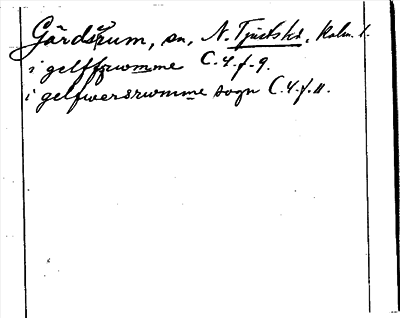 Gärdsrum, sn, N. Tjusts hd, Kalm. l.
i gelffrwmme C. 4. f. 9.
i gelfwersrwmme sogn C. 4. f. 11.